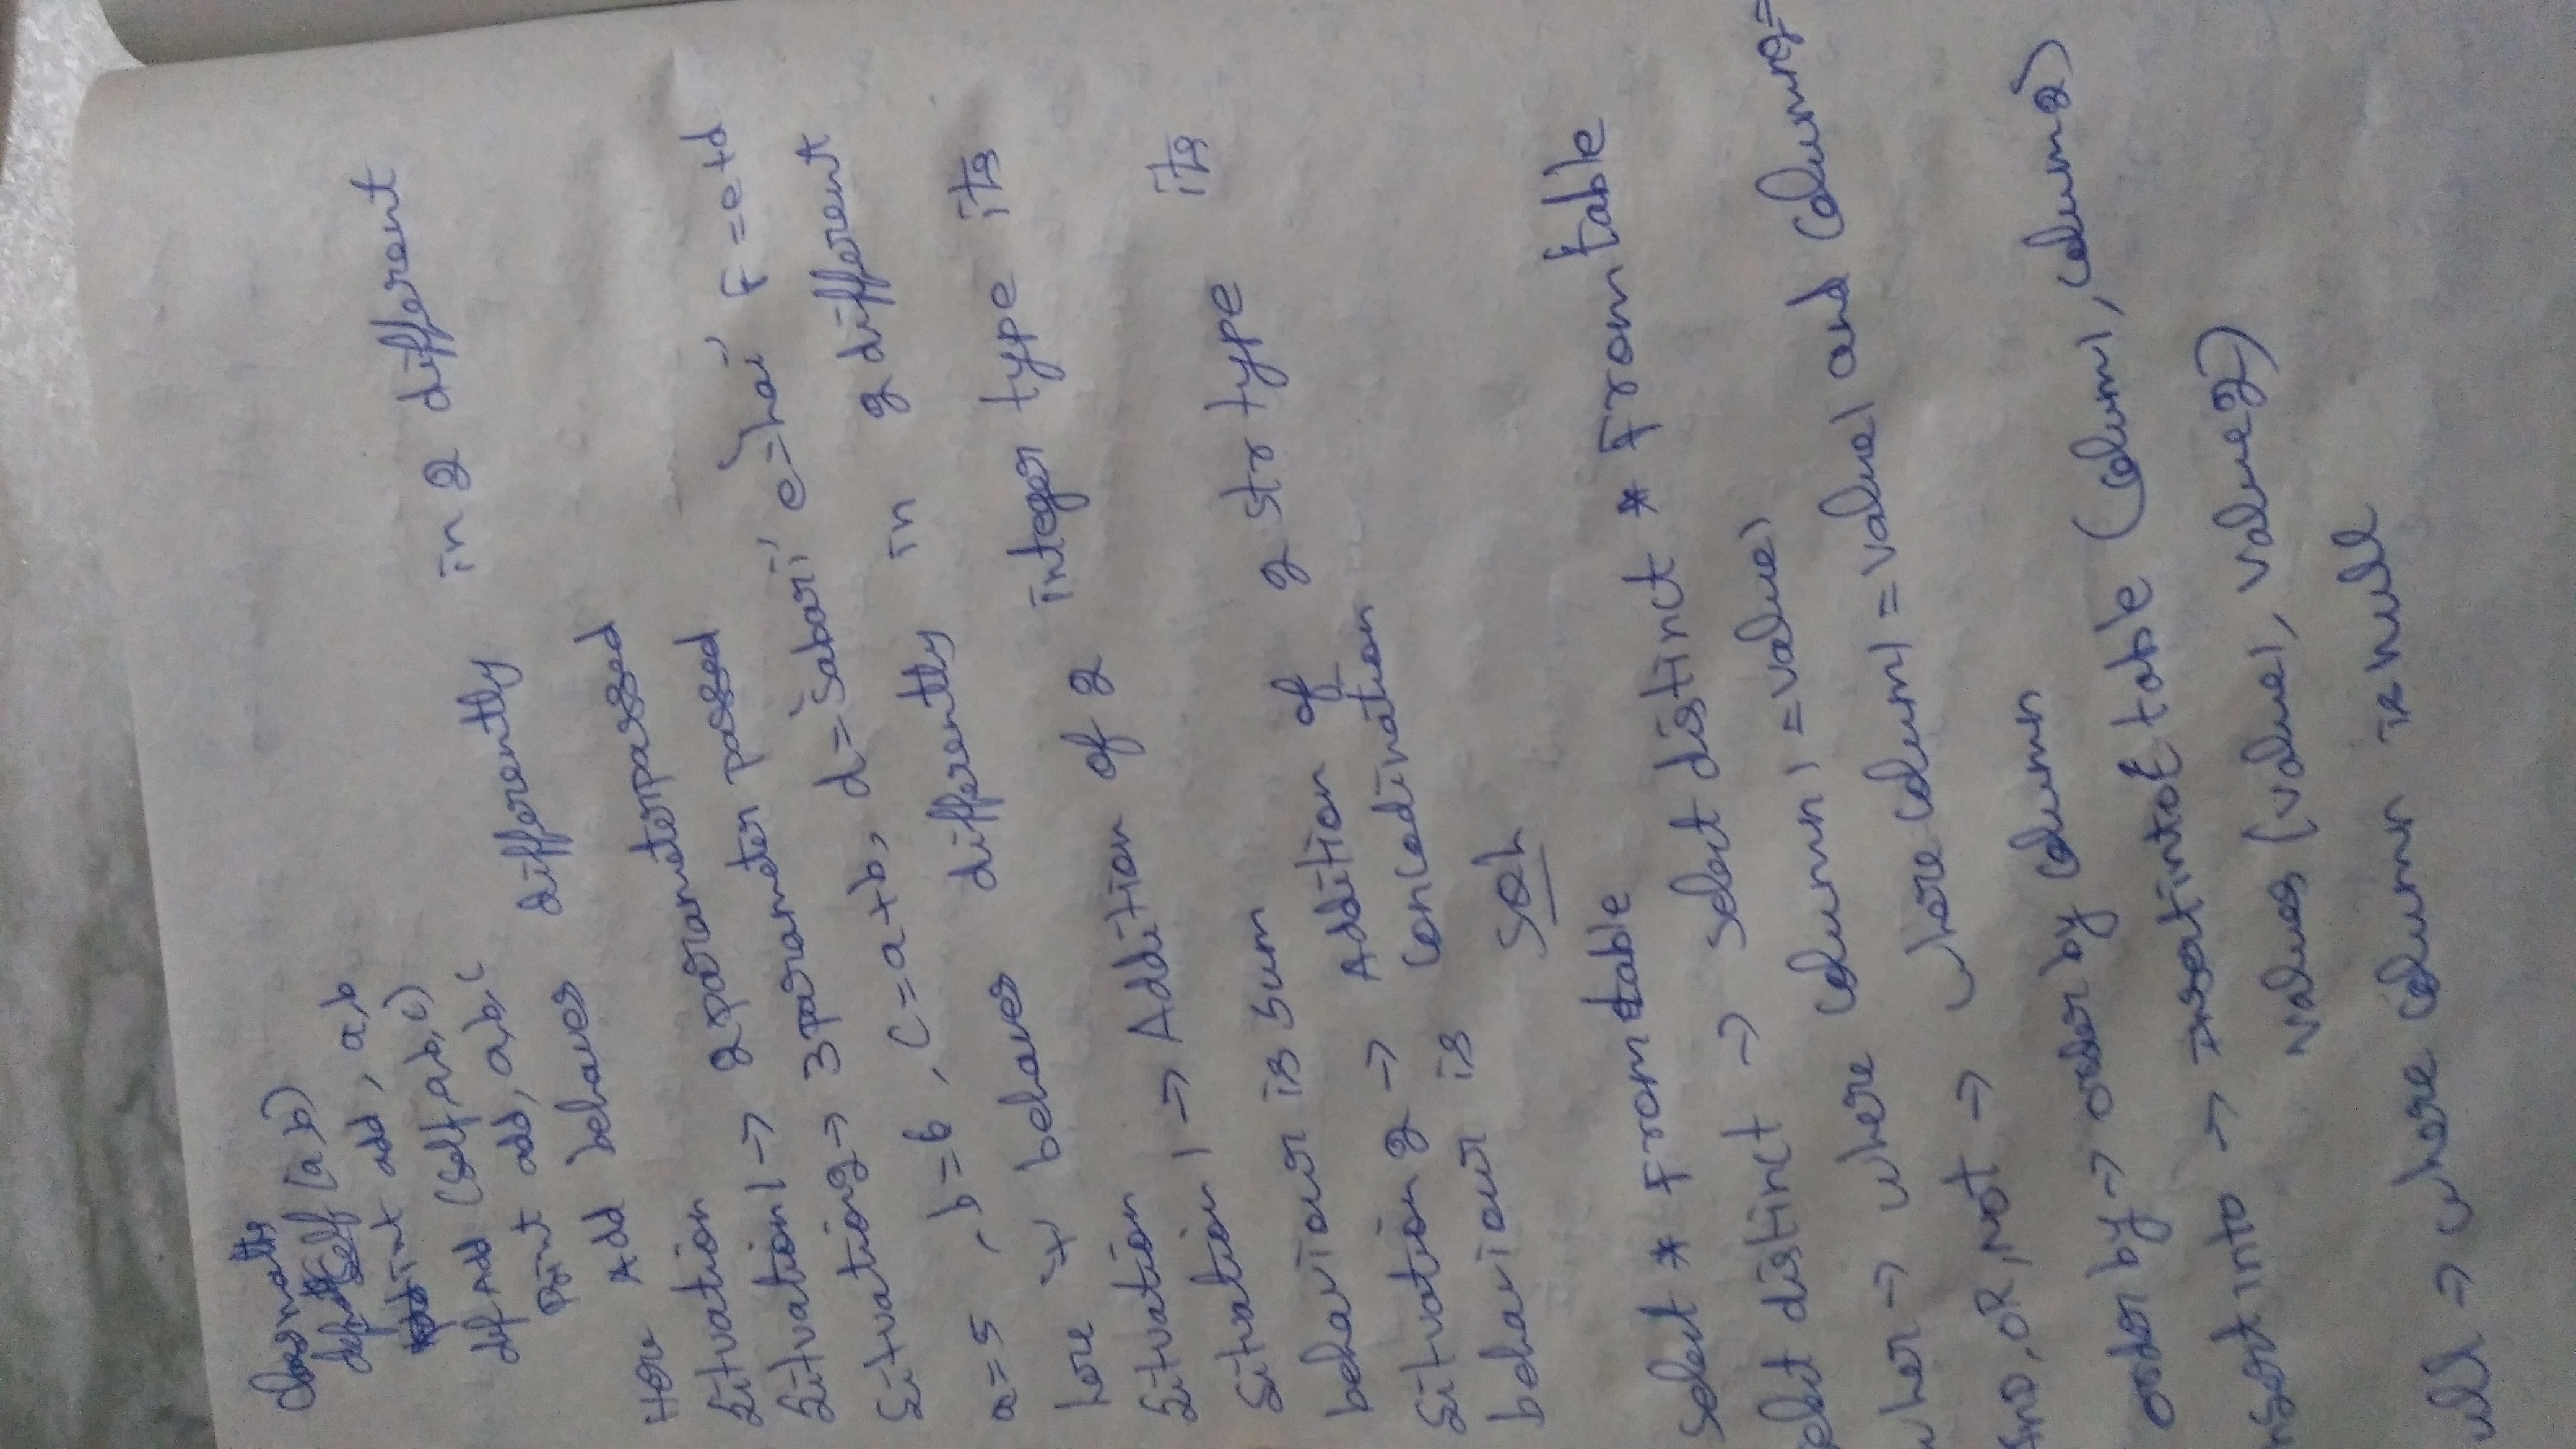 class maths
def add self (a, b)
print add, a, b
def Add (self, a, b, c)
Print add, a, b, c
Here Add behaves differently in 2 different
Situvation
Situvation 1 → 2 parameter passed
Situvation 2 → 3 parameter passed
a = 5, b = 6, c = a + b, d = 'Sabari' e = 'hai' F = e + d
here '+' behaves differently in 2 different
Situvation
Situvation 1 → Addition of 2 integer type its
behaviour is sum
Situvation 2 → Addition of 2 str type its
behaviour is concadination
Sql
Select * From table
select distinct → select distinct * From table
wher → where column 1 = value 1
And, OR, Not → where column 1 = value 1 and column 2 =
order by → order by column
insert into → Insert into table (column 1, column 2)
values (value 1, value 2)
null → where column is null